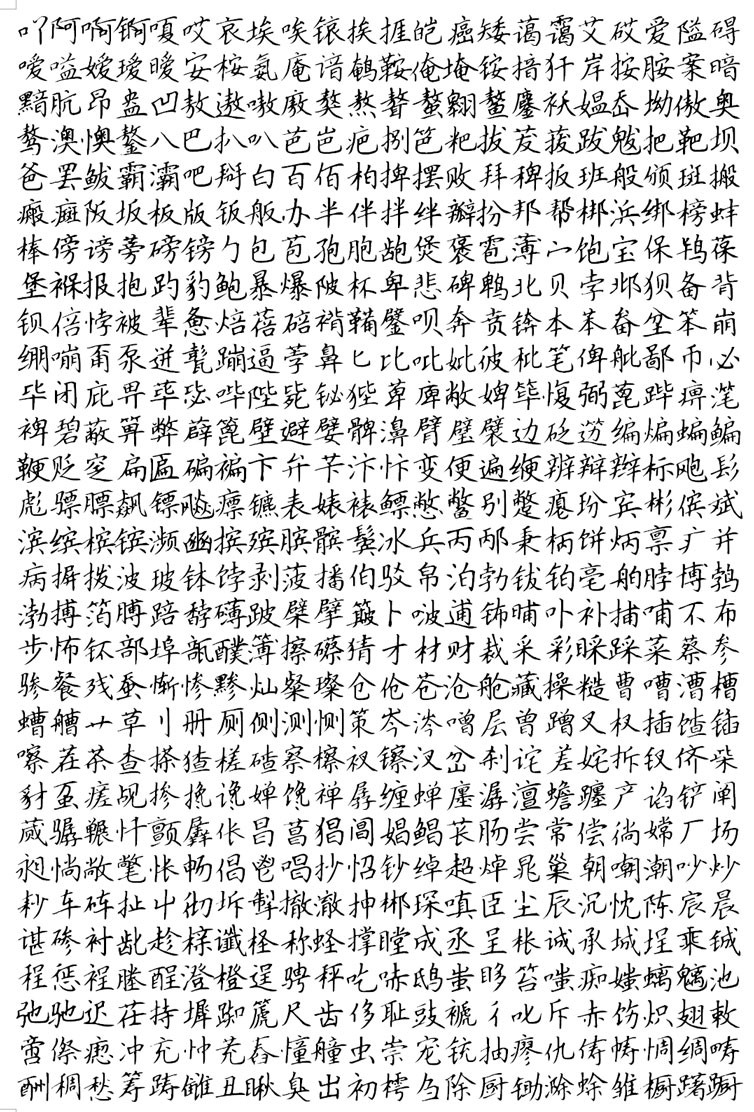 吖阿啊锕嗄哎哀埃唉锿挨捱皑癌矮蔼霭艾砹爱隘碍
嗳嗌嫒瑷暧安桉氨庵谙鹌鞍俺埯铵揞犴岸按胺案暗
黯肮昂盎凹敖遨嗷廒獒熬聱螯翱鳌鏖袄媪岙坳傲奥
骜澳懊鏊八巴扒叭芭岜疤捌笆粑拔茇菝跋魃把靶坝
爸罢鲅霸灞吧掰白百佰柏捭摆败拜稗扳班般颁斑搬
瘢癍阪坂板版钣舨办半伴拌绊瓣扮邦帮梆浜绑榜蚌
棒傍谤蒡磅镑勹包苞孢胞龅煲褒雹薄宀饱宝保鸨葆
堡褓报抱趵豹鲍暴爆陂杯卑悲碑鹎北贝孛邶狈备背
钡倍悖被辈惫焙蓓碚褙鞴鐾呗奔贲锛本苯畚坌笨崩
绷嘣甭泵迸甏蹦逼荸鼻匕比吡妣彼秕笔俾舭鄙币必
毕闭庇畀荜毖哔陛毙铋狴萆庳敝婢筚愎弼蓖跸痹滗
裨碧蔽箅弊薜篦壁避嬖髀濞臂璧襞边砭笾编煸蝙鳊
鞭贬窆扁匾碥褊卞弁苄汴忭变便遍缏辨辩辫标飑髟
彪骠膘飙镖飚瘭镳表婊裱鳔憋鳖别蹩瘪玢宾彬傧斌
滨缤槟镔濒豳摈殡膑髌鬓冰兵丙邴秉柄饼炳禀疒并
病摒拨波玻钵饽剥菠播伯驳帛泊勃钹铂亳舶脖博鹁
渤搏箔膊踣礴跛檗擘簸卜啵逋钸晡卟补捕哺不布
步怖钚部埠瓿醭簿擦礤猜才材财裁采彩睬踩菜蔡参
骖餐残蚕惭惨黪灿粲璨仓伧苍沧舱藏操糙曹嘈漕槽
螬艚艹草刂册厕侧测恻策岑涔噌层曾蹭叉杈插馇锸
嚓茬茶查搽猹槎碴察檫衩镲汊岔刹诧差姹拆钗侪柴
豺虿瘥觇掺搀谗婵馋禅孱缠蝉廛潺澶蟾躔产谄铲阐
蒇骣冁忏颤羼伥昌菖猖阊娼鲳苌肠尝常偿徜嫦厂场
昶惝敞氅怅畅倡鬯唱抄怊钞绰超焯晁巢朝嘲潮吵炒
耖车砗扯屮彻坼掣撤澈抻郴琛嗔臣尘辰沉忱陈宸晨
谌碜衬龀趁榇谶柽称蛏撑瞠成丞呈枨诚承城埕乘铖
程惩裎塍酲澄橙逞骋秤吃哧鸱蚩眵笞嗤痴媸螭魑池
弛驰迟茌持墀踟篪尺齿侈耻豉褫彳叱斥赤饬炽翅敕
啻傺瘛冲充忡茺舂憧艟虫崇宠铳抽瘳仇俦帱惆绸畴
酬稠愁筹踌雠丑瞅臭出初樗刍除厨锄滁蜍雏橱躇蹰